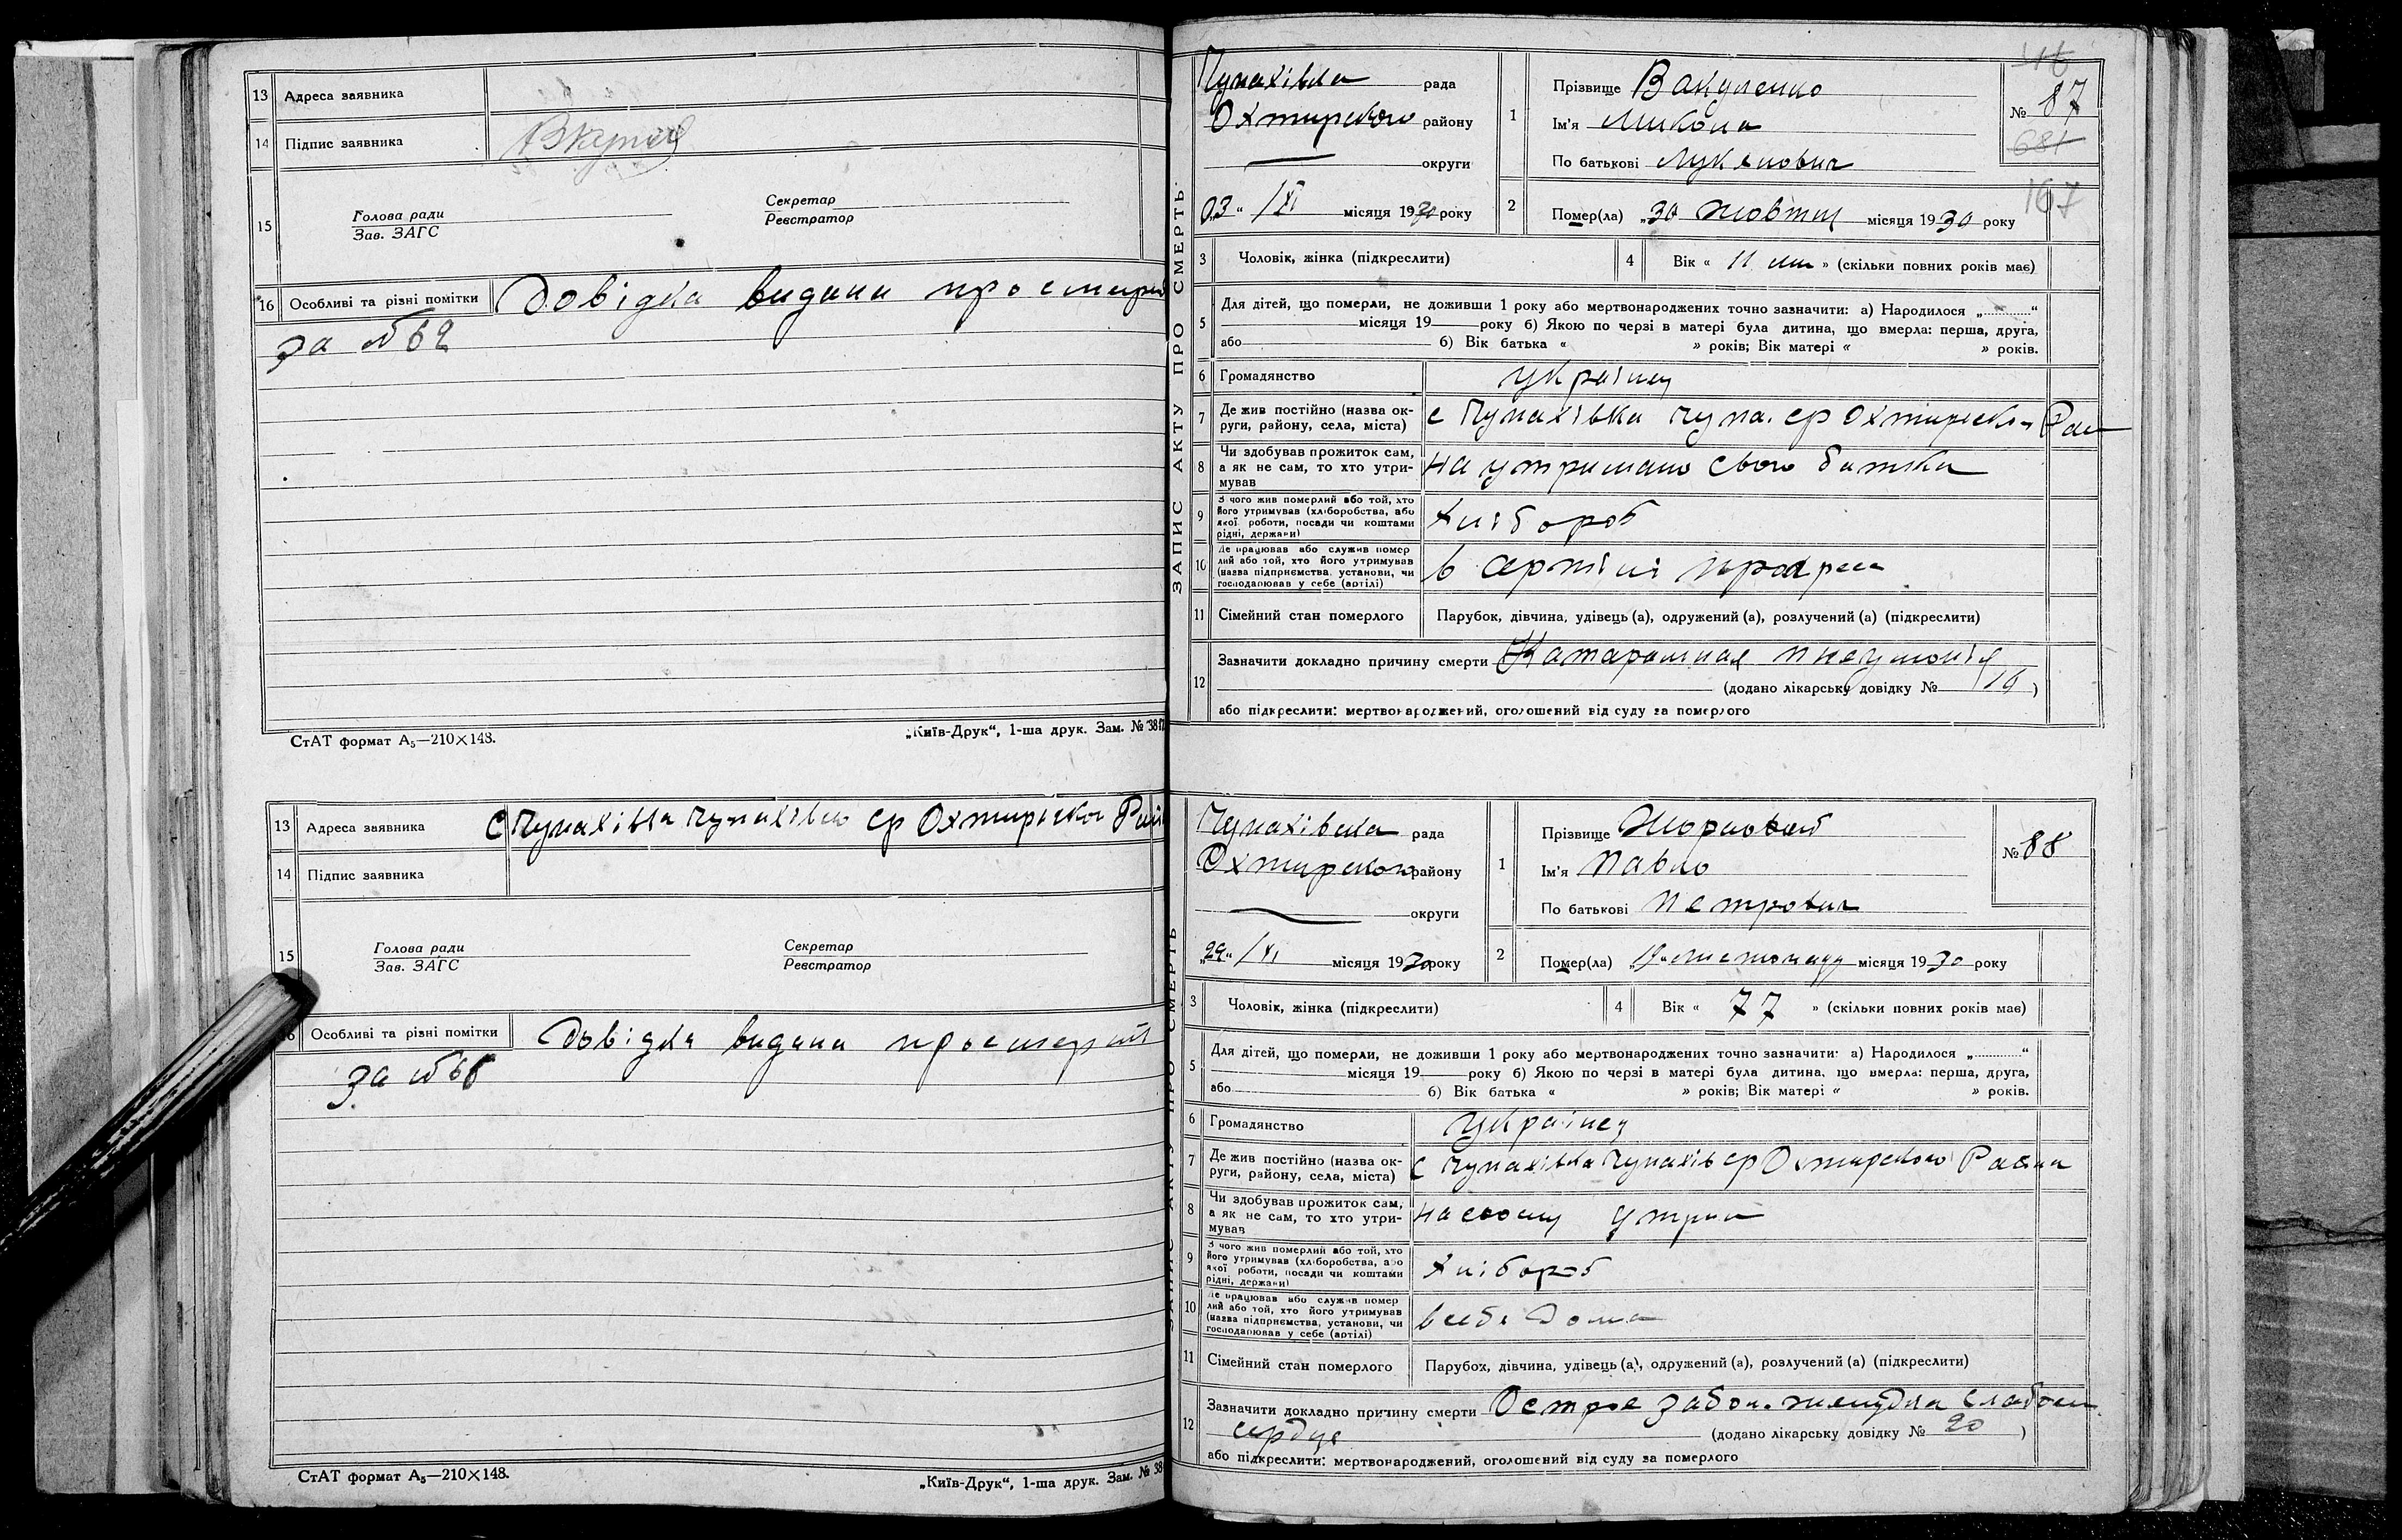 13 Адреса заявника
14 Підпис заявника
15 Голова ради
Зав. ЗАГС
Секретар
Реєстратор
16 Особливі та різні помітки Довідка видана про смерть
за № 62
СтАТ формат А₅—210×148.
„Київ-Друк“, 1-ша друк. Зам. № 38
13 Адреса заявника с Чупахівка ср Охтирсько
14 Підпис заявника
15 Голова ради
Зав. ЗАГС
Секретар
Реєстратор
16 Особливі та різні помітки Довідка видана про смерт
за №
СтАТ формат А₅—210×148.
„Київ-Друк“, 1-ша друк. Зам. № 38
ЗАПИС АКТУ ПРО СМЕРТЬ.
Чупахівка рада
Охтирского району
округи
03 „ /XI місяця 1930 року
1 Прізвище Вакуленко
Ім'я Микола
По батькові Лукянович
№ 87
681
167
2 Помер(ла) „30 жовтня місяця 1930 року
3 Чоловік, жінка (підкреслити)
4 Вік « 11 » (скільки повних років має)
5 Для дітей, що померли, не доживши 1 року або мертвонароджених точно зазначити: а) Народилося „............“
місяця 19 року б) Якою по черзі в матері була дитина, що вмерла: перша, друга,
або б) Вік батька « » років; Вік матері « » років.
6 Громадянство українец
7 Де жив постійно (назва округи, району, села, міста) с Чупахівка чупа. ср Охтирско Рай
8 Чи здобував прожиток сам, а як не сам, то хто утримував на утримано свого батька
9 З чого жив померлий або той, хто його утримував (хліборобства, або якої роботи, посади чи коштами рідні, держави) Хлібороб
10 Де працював або служив померлий або той, хто його утримував (назва підприємства, установи, чи господарював у себе (артілі) в артілі
11 Сімейний стан померлого Парубок, дівчина, удівець (а), одружений (а), розлучений (а) (підкреслити)
12 Зазначити докладно причину смерти Катаральная пневмонія
(додано лікарську довідку № 16 )
або підкреслити: мертвонароджений, оголошений від суду за померлого
ЗАПИС АКТУ ПРО СМЕРТЬ
Чупахівска рада
Охтирского району
округи
„29“ /XI місяця 1930 року
1 Прізвище
Ім'я Павло
По батькові Петрович
№ 88
2 Помер(ла) листопаду місяця 1930 року
3 Чоловік, жінка (підкреслити)
4 Вік « 77 » (скільки повних років має)
5 Для дітей, що померли, не доживши 1 року або мертвонароджених точно зазначити: а) Народилося „............“
місяця 19 року б) Якою по черзі в матері була дитина, що вмерла: перша, друга,
або б) Вік батька « » років; Вік матері « » років.
6 Громадянство українец
7 Де жив постійно (назва округи, району, села, міста) с Чупахівка Чупахів ср Охтирского Раёна
8 Чи здобував прожиток сам, а як не сам, то хто утримував на своему утрим
9 З чого жив померлий або той, хто його утримував (хліборобства, або якої роботи, посади чи коштами рідні, держави) Хлібороб
10 Де працював або служив померлий або той, хто його утримував (назва підприємства, установи, чи господарював у себе (артілі) в себе дома
11 Сімейний стан померлого Парубок, дівчина, удівець (а), одружений (а), розлучений (а) (підкреслити)
12 Зазначити докладно причину смерти Острое забол. желудка слабост
сердце (додано лікарську довідку № 20 )
або підкреслити: мертвонароджений, оголошений від суду за померлого